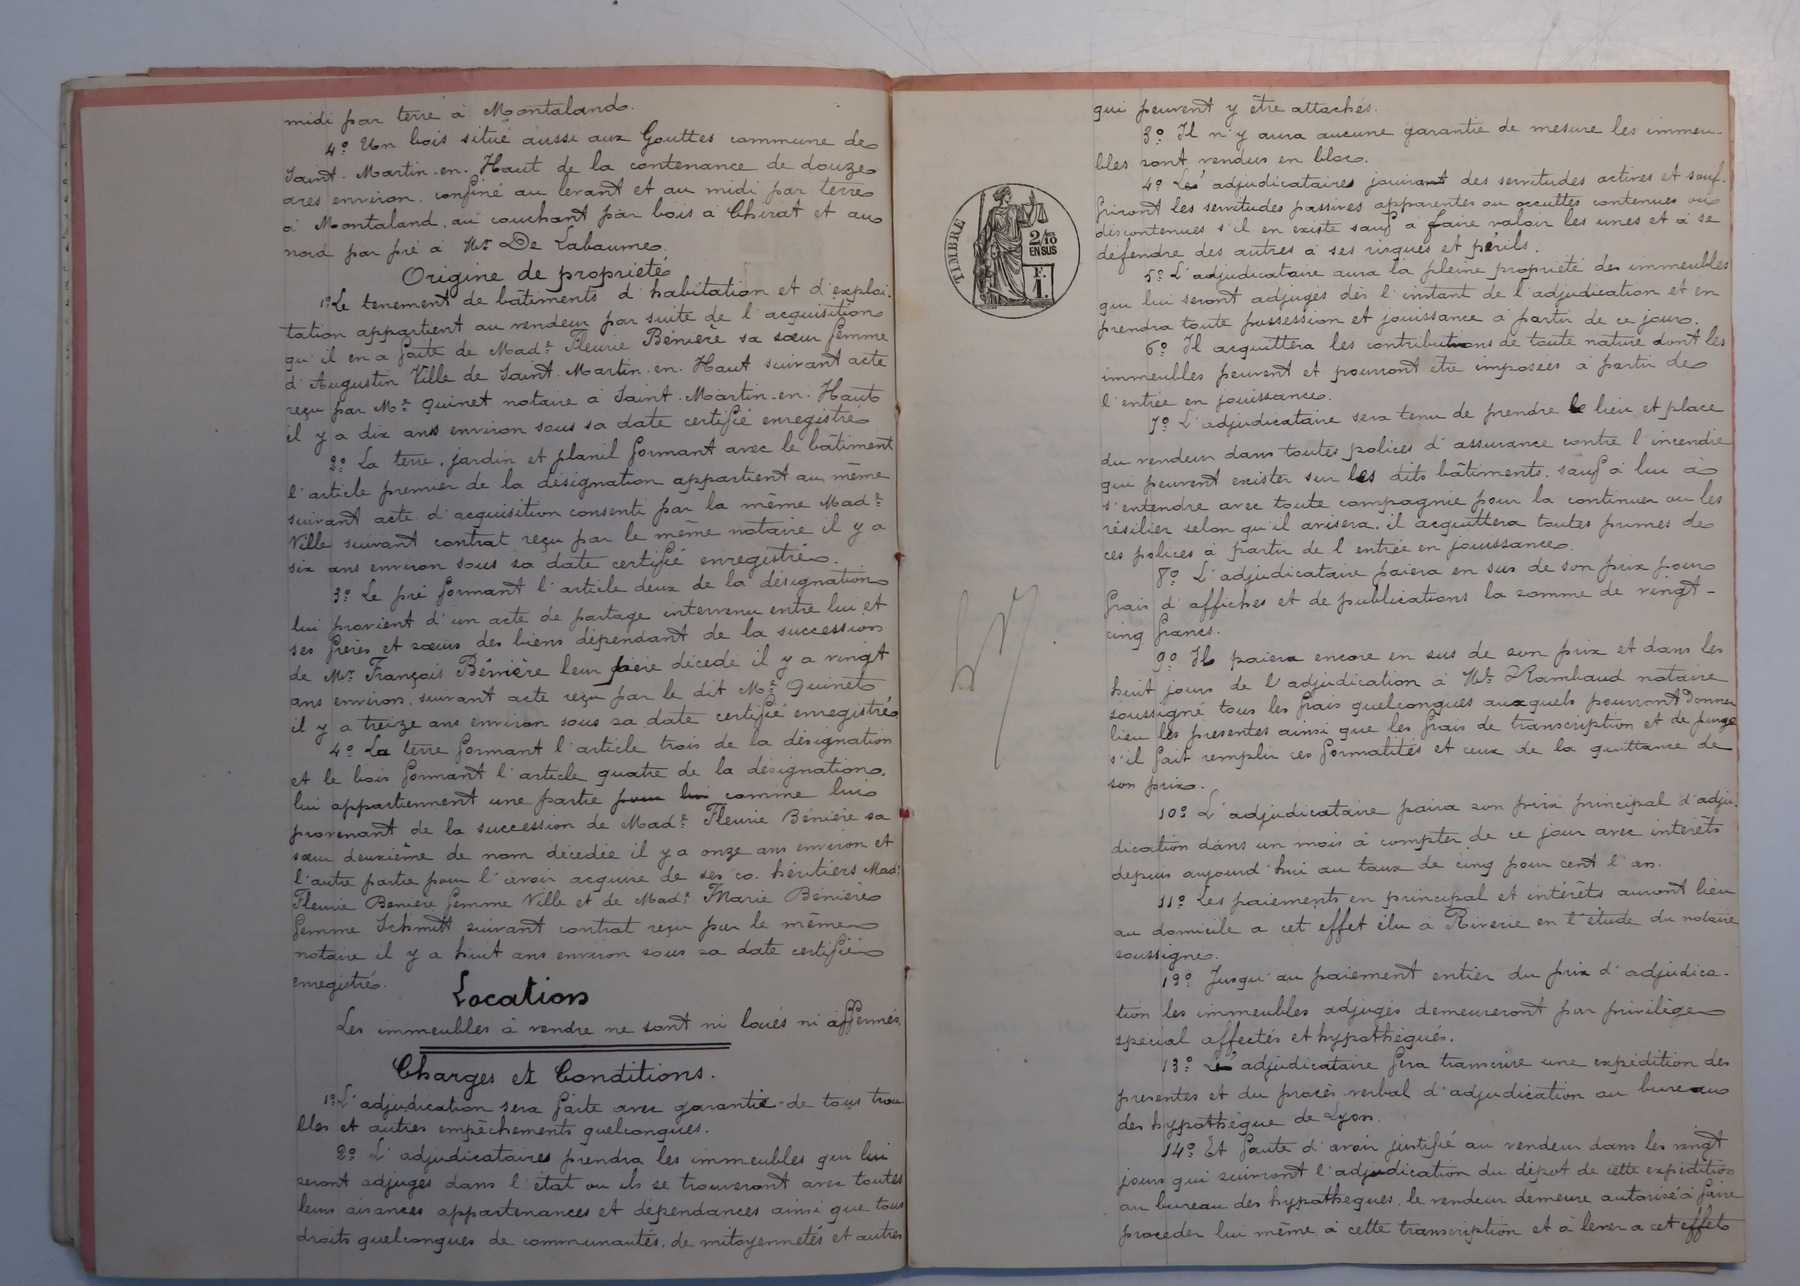 midi par terre à Montaland.
4º Un bois situé aussi aux Gouttes commune de
Saint-Martin-en-Haut de la contenance de douze
ares environ, confiné au levant et au midi par terre
à Montaland, au couchant par bois à Chirat et au
nord par pré à Mr De Labaume.
Origine de propriété
1º Le tenement de bâtiments d'habitation et d'exploi-
tation appartient au vendeur par suite de l'acquisition
qu'il en a faite de Made Fleurie Bénière sa sœur femme
d'Augustin Ville de Saint-Martin-en-Haut suivant acte
reçu par Me Quinet notaire à Saint-Martin-en-Haut
il y a dix ans environ sous sa date certifié enregistré
2º La terre, jardin et planil formant avec le bâtiment
l'article premier de la désignation appartient au même
suivant acte d'acquisition consenti par la même Made
Ville suivant contrat reçu par le même notaire il y a
six ans environ sous sa date certifié enregistré.
3º Le pré formant l'article deux de la désignation
lui provient d'un acte de partage intervenu entre lui et
ses frères et sœurs des biens dépendant de la succession
de Mr François Bénière leur père décédé il y a vingt
ans environ, suivant acte reçu par le dit Me Quinet
il y a treize ans environ sous sa date certifié enregistré
4º La terre formant l'article trois de la désignation
et le bois formant l'article quatre de la désignation,
lui appartiennent une partie pour lui comme lui
provenant de la succession de Made Fleurie Bénière sa
sœur deuxième de nom décédée il y a onze ans environ et
l'autre partie pour l'avoir acquise de ses co-héritiers Made
Fleurie Bénière femme Ville et de Made Marie Bénière
femme Schmitt suivant contrat reçu par le même
notaire il y a huit ans environ sous sa date certifié
enregistré.
Location
Les immeubles à vendre ne sont ni loués ni affermés.
Charges et Conditions.
1º L'adjudication sera faite avec garantie de tous trou-
bles et autres empêchements quelconques.
2º L'adjudicataires prendra les immeubles qui lui
seront adjugés dans l'état ou ils se trouveront avec toutes
leurs aisances appartenances et dépendances ainsi que tous
droits quelconques de communautés, de mitoyennetés et autres
qui peuvent y être attachés.
3º Il n'y aura aucune garantie de mesure les immeu-
bles sont vendus en bloc.
4º Les adjudicataires jouiront des servitudes actives et souf-
friront les servitudes passives apparentes ou occultes contenues ou
discontenues s'il en existe sauf à faire valoir les unes et à se
défendre des autres à ses risques et périls.
5º L'adjudicataire aura la pleine propriété des immeubles
qui lui seront adjugés dès l'instant de l'adjudication et en
prendra toute possession et jouissance à partir de ce jour.
6º Il acquittera les contributions de toute nature dont les
immeubles peuvent et pourront être imposées à partir de
l'entrée en jouissance.
7º L'adjudicataire sera tenu de prendre le lieu et place
du vendeur dans toutes polices d'assurance contre l'incendie
qui peuvent exister sur les dits bâtiments, sauf à lui à
s'entendre avec toute compagnie pour la continuer ou les
résilier selon qu'il avisera, il acquittera toutes primes de
ces polices à partir de l'entrée en jouissance.
8º L'adjudicataire paiera en sus de son prix pour
frais d'affiches et de publications la somme de vingt-
cinq francs.
9º Il paiera encore en sus de son prix et dans les
huit jours de l'adjudication à Me Rambaud notaire
soussigné tous les frais quelconques auxquels pourront donner
lieu les présentes ainsi que les frais de transcription et de purge
s'il fait remplir ces formalités et ceux de la quittance de
son prix.
10º L'adjudicataire paira son prix principal d'adju-
dication dans un mois à compter de ce jour avec intérêts
depuis aujourd'hui au taux de cinq pour cent l'an.
11º Les paiements en principal et intérêts auront lieu
au domicile à cet effet élu à Riverie en l'étude du notaire
soussigné.
12º Jusqu'au paiement entier du prix d'adjudica-
tion les immeubles adjugés demeureront par privilège
spécial affectés et hypothéqués.
13º L'adjudicataire fera transcrire une expédition des
présentes et du procès-verbal d'adjudication au bureau
des hypothèque de Lyon.
14º Et faute d'avoir justifié au vendeur dans les vingt
jours qui suivront l'adjudication du dépot de cette expédition
au bureau des hypothèques, le vendeur demeure autorisé à faire
procéder lui même à cette transcription et à lever à cet effet
TIMBRE
2/10
EN SUS
F.
1.